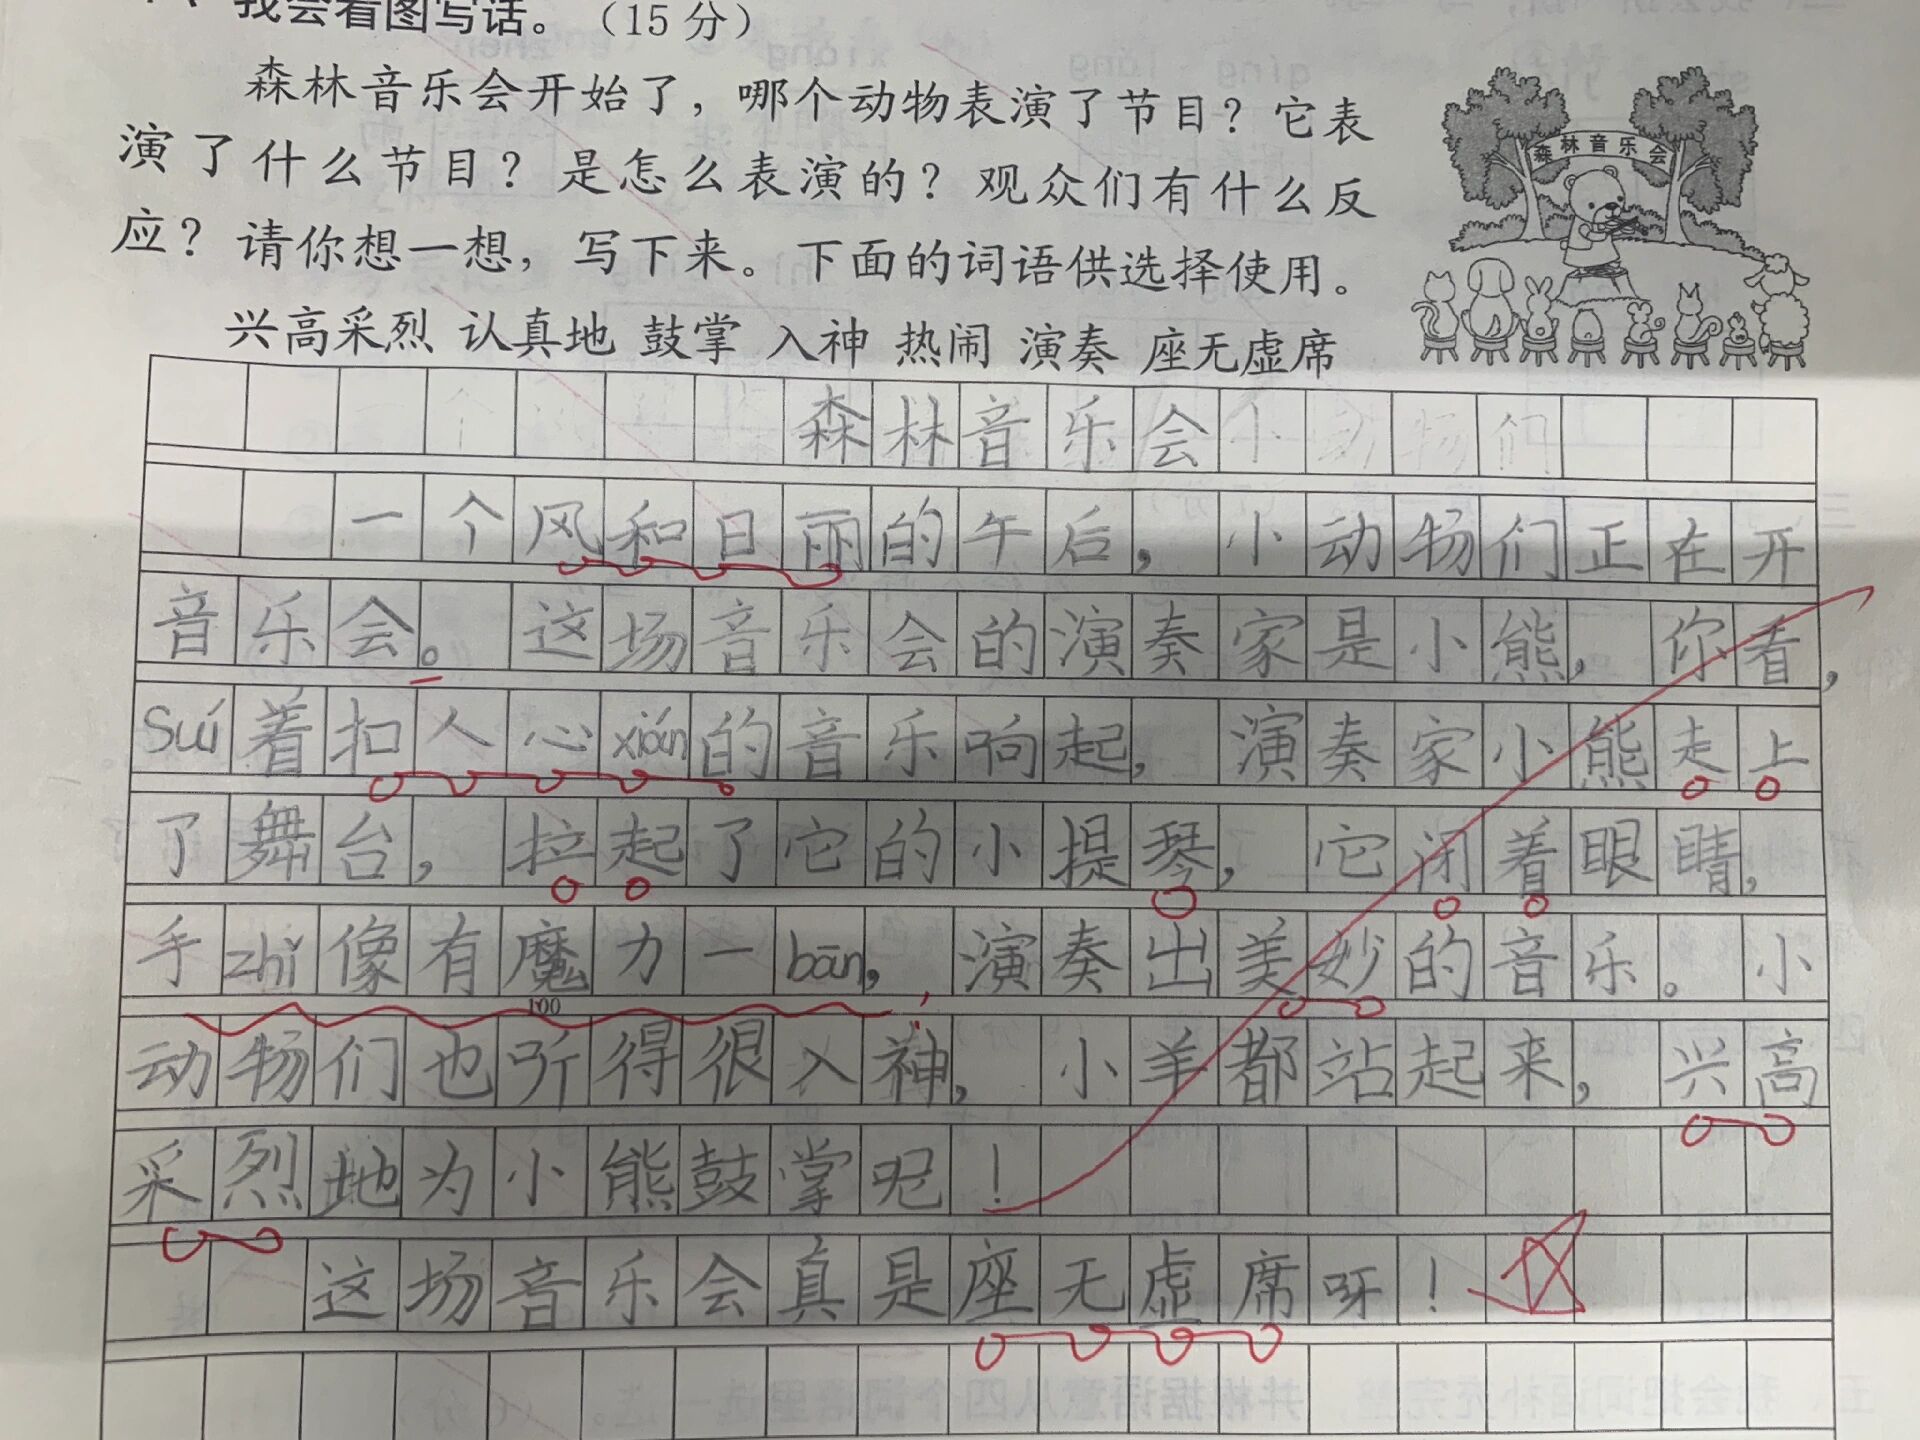 、我会看图写话。（15分）
森林音乐会开始了，哪个动物表演了节目？它表
演了什么节目？是怎么表演的？观众们有什么反
应？请你想一想，写下来。下面的词语供选择使用。
森林音乐会
兴高采烈 认真地 鼓掌 入神 热闹 演奏 座无虚席
森林音乐会
一个风和日丽的午后，小动物们正在开
音乐会。这场音乐会的演奏家是小熊，你看，
Suí着扣人心xián的音乐响起，演奏家小熊走上
了舞台，拉起了它的小提琴，它闭着眼睛，
手zhǐ像有魔力一bān，演奏出美妙的音乐。小
100
动物们也听得很入神，小羊都站起来，兴高
采烈地为小熊鼓掌呢！
这场音乐会真是座无虚席呀！